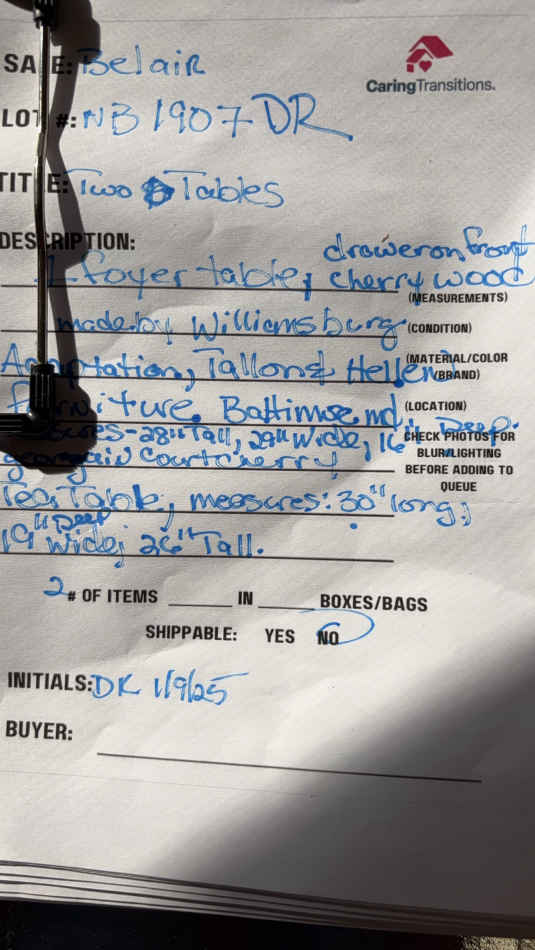 CaringTransitions.
SALE: Belair
LOT #: NB 1907 DR
TITLE: Two Tables
DESCRIPTION:
drawer on front
1 foyer table, cherry wood
(MEASUREMENTS)
made by Williamsburg
(CONDITION)
Adaptation, Tallon & Hellen
(MATERIAL/COLOR
/BRAND)
Furniture, Baltimore md.
(LOCATION)
measures-28" Tall, 29" Wide, 16" Deep.
CHECK PHOTOS FOR
BLUR/LIGHTING
BEFORE ADDING TO
QUEUE
Court cherry
Tea Table, measures: 30" long;
19" Deep
wide; 26" Tall.
2 # OF ITEMS ______ IN ______ BOXES/BAGS
SHIPPABLE: YES NO
INITIALS: DK 1/9/25
BUYER: